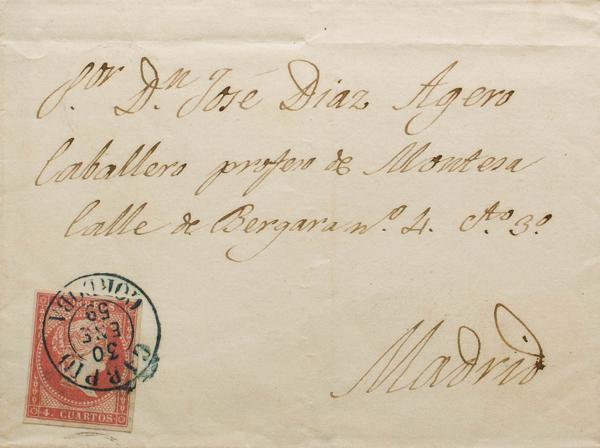 S.or D.n José Diaz Agero
Caballero profeso de Montesa
Calle de Bergara nº. 4. Cto. 3º.
Madrid
CARPIO
30
ENE
59
CORDOBA
4. CUARTOS